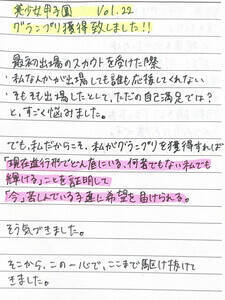 美少女甲子園　Vol.22
グランプリ獲得致しました!!
最初出場のスカウトを受けた際
・私なんかが出場しても誰も応援してくれない
・そもそも出場したとして、ただの自己満足では?
と、すごく悩みました。
でも、私だからこそ、私がグランプリを獲得すれば
「現在進行形でどん底にいる、何者でもない私でも
輝ける」ことを証明して
「今」苦しんでいる子達に希望を届けられる。
そう気づきました。
そこから、この一心で、ここまで駆け抜けて
きました。